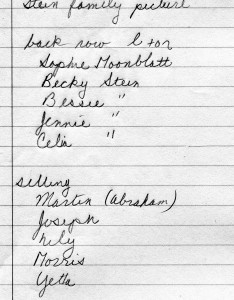 Stein family picture
back row l to r
Sophie Moonblatt
Becky Stein
Bessie "
Jennie "
Celia "
Martin (Abraham)
Joseph
Lily
Morris
Yetta